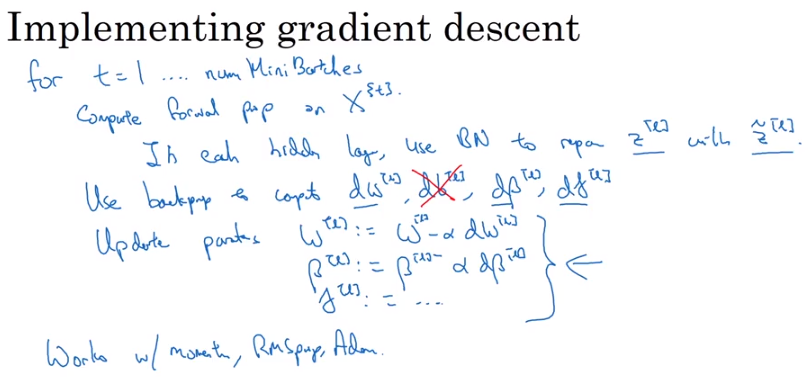 Implementing gradient descent
for t = 1 .... num Mini Batches
Compute forward prop on X^{t}.
In each hidden layer, use BN to repar z^[l] with z̃^[l].
Use backprop to compute dw^[l], db^[l], dβ^[l], dγ^[l]
Update parates w^[l] := w^[l] - α dw^[l]
β^[l] := β^[l] - α dβ^[l]
γ^[l] := ....
Works w/ momentum, RMSprop, Adam.